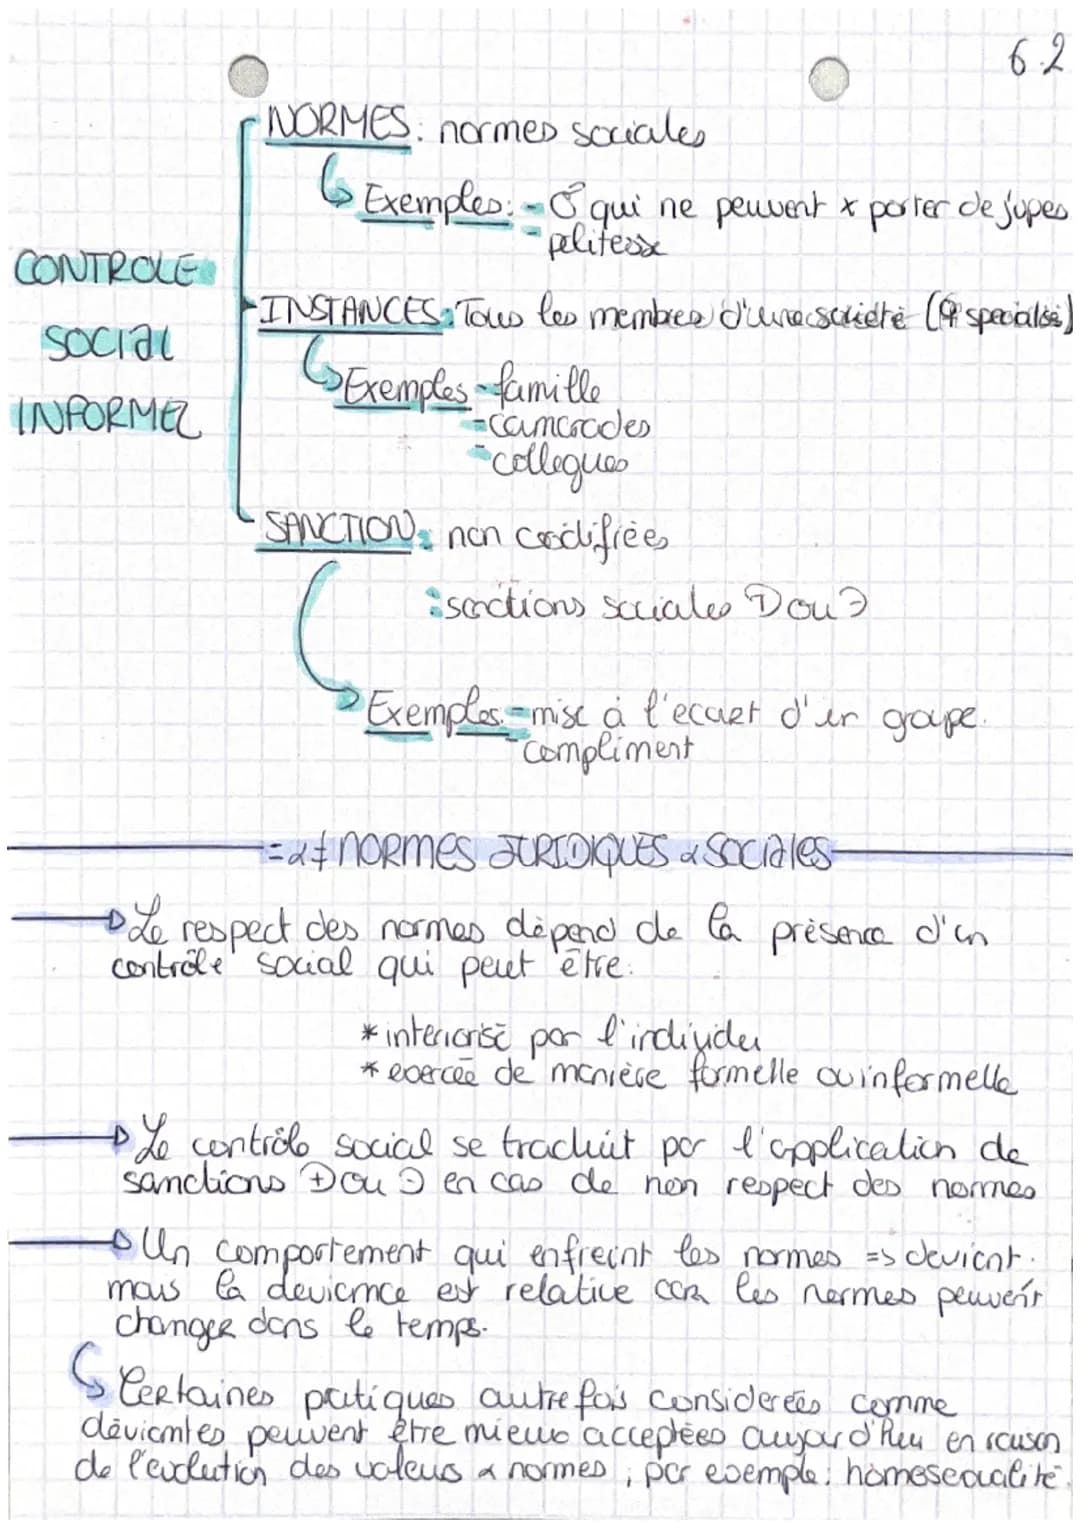 6.2
NORMES: normes sociales
Exemples: - ♂ qui ne peuvent x porter de jupes
- politesse
CONTROLE
SOCIAL
INFORMEL
INSTANCES: Tous les membres d'une société ( spécialisé)
Exemples - famille
- camarades
- collegues
SANCTION: non codifiées
: sanctions sociales ⊕ ou ⊖
Exemples: - mise à l'ecart d'un groupe.
- compliment
= & ≠ NORMES JURIDIQUES & SOCIALES
Le respect des normes dépend de la présence d'un
contrôle social qui peut être:
* interiorisé par l'individu
* exercée de manière formelle ou informelle
Le contrôle social se traduit par l'application de
sanctions ⊕ ou ⊖ en cas de non respect des normes
Un comportement qui enfreint les normes => deviant.
mais la deviance est relative car les normes peuvent
changer dans le temps.
Certaines pratiques autrefois considerées comme
déviantes peuvent être mieux acceptées aujourd'hui en raison
de l'évolution des valeurs & normes, par exemple: homosexualité.